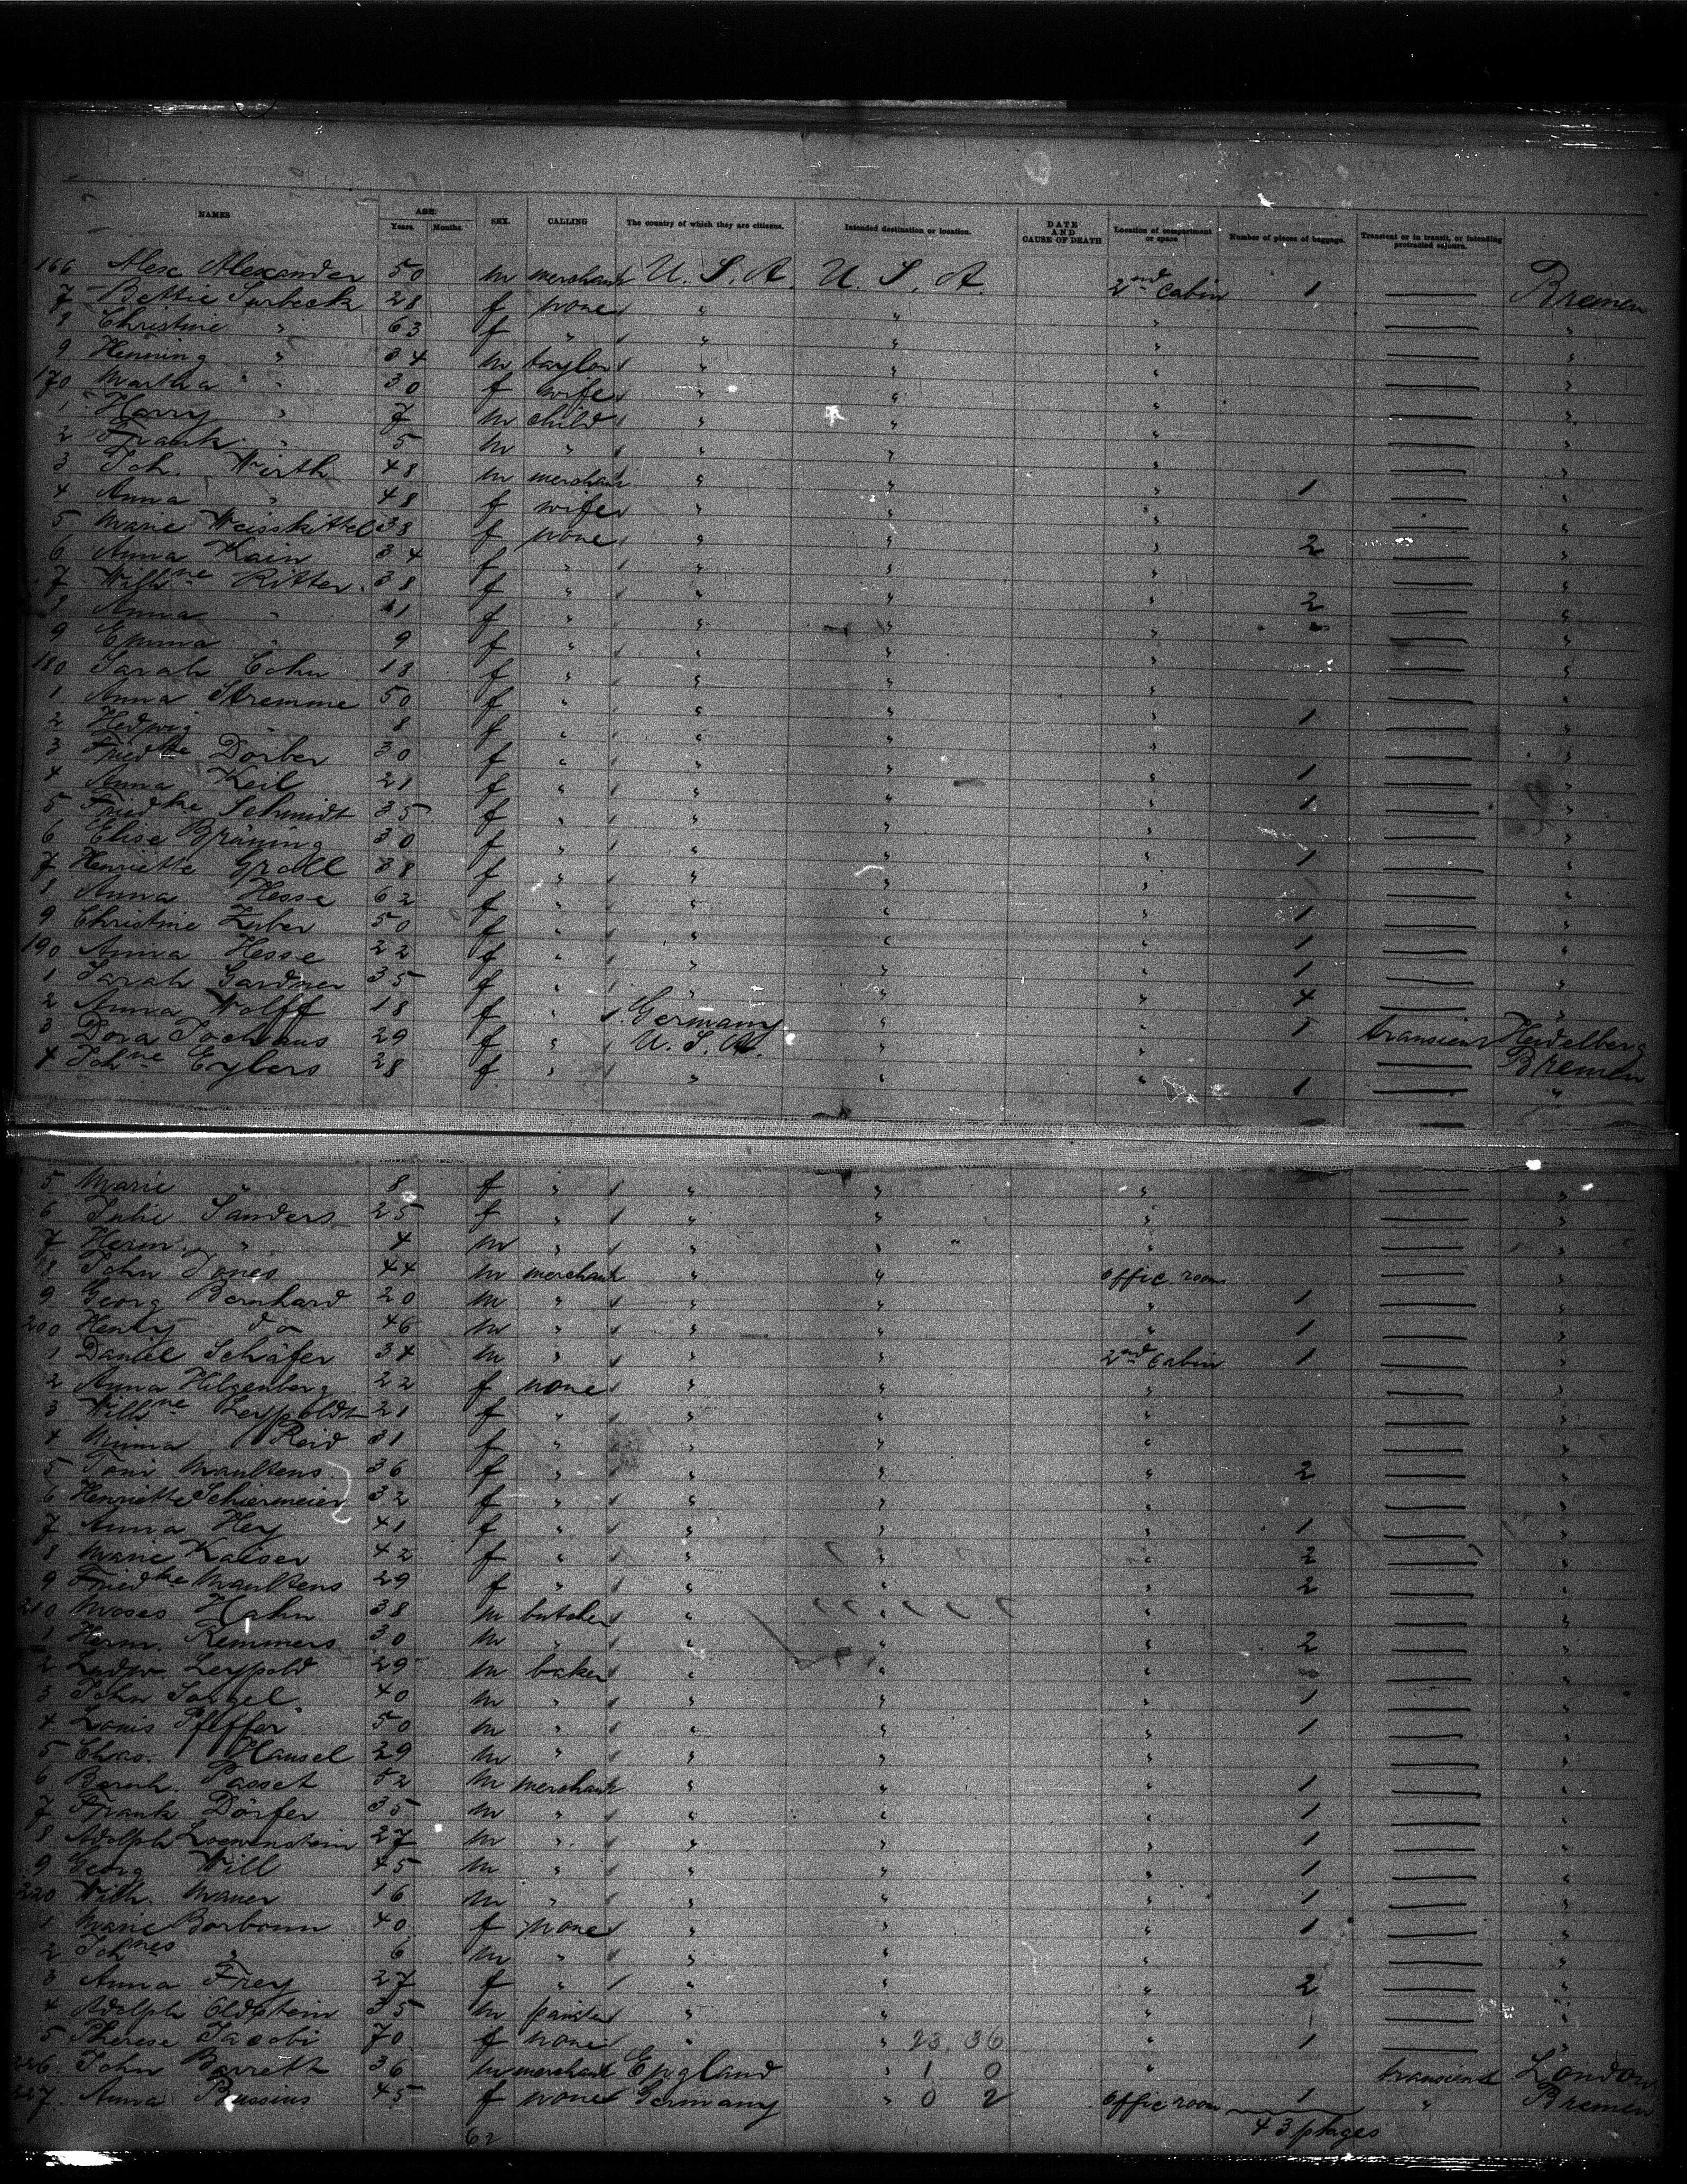 NAMES AGE. Years. Months SEX. CALLING The country of which they are citizens. Intended destination or location. DATE AND CAUSE OF DEATH Location of compartment or space Number of pieces of baggage. Transient or in transit, or intending protracted sojourn.
166 Alex Alexander 50 m merchant U. S. A. U. S. A. 2nd Cabin 1 — Bremen
7 Bettie Surbeck 28 f none " " " — "
8 Christine " 63 f " " " " — "
9 Henning " 34 m taylor " " " — "
170 Martha " 30 f wife " " " — "
1 Harry " 7 m child " " " — "
2 Frank " 5 m " " " " — "
3 Joh. Wirth 48 m merchant " " " 1 — "
4 Anna " 48 f wife " " " — "
5 Marie Weisskittel 38 f none " " " 2 — "
6 Anna Kain 34 f " " " " — "
7 Wilhne Ritter 38 f " " " " 2 — "
8 Anna " 11 f " " " " — "
9 Emma " 9 f " " " " — "
180 Sarah Cohn 18 f " " " " — "
1 Anna Stremme 50 f " " " " 1 — "
2 Hedwig " 8 f " " " " — "
3 Friedke Dörber 30 f " " " " 1 — "
4 Anna Keil 21 f " " " " 1 — "
5 Friedke Schmidt 35 f " " " " — "
6 Elise Bräuning 30 f " " " " 1 — "
7 Henriette Groll 38 f " " " " — "
8 Anna Hesse 62 f " " " " 1 — "
9 Christine Zuber 50 f " " " " 1 — "
190 Anna Hesse 22 f " " " " 1 — "
1 Sarah Gardner 35 f " " " " 4 — "
2 Anna Wolff 18 f " Germany " " 1 transient Heidelberg
3 Dora Jochnus 29 f " U. S. A. " " — Bremen
4 Johne Eylers 28 f " " " " 1 — "
5 Marie " 8 f " " " " — "
6 Julie Sanders 25 f " " " " — "
7 Herm. " 4 m " " " " — "
8 John Jones 44 m merchant " " offic. room — "
9 Georg Bernhard 20 m " " " " 1 — "
200 Henry do 46 m " " " " 1 — "
1 Daniel Schäfer 34 m " " " 2nd Cabin 1 — "
2 Anna Hilgenberg 22 f none " " " — "
3 Wilhne Leypoldt 21 f " " " " — "
4 Minna Reid 31 f " " " " — "
5 Toni Maultens 36 f " " " " 2 — "
6 Henriette Schiermeier 32 f " " " " — "
7 Anna Hey 41 f " " " " 1 — "
8 Marie Kaiser 42 f " " " " 2 — "
9 Friedke Maultens 29 f " " " " 2 — "
210 Moses Hahn 38 m butcher " " " — "
1 Herm. Remmers 30 m " " " " 2 — "
2 Ludw. Leypold 29 m baker " " " — "
3 John Sorgel 40 m " " " " 1 — "
4 Louis Pfeffer 50 m " " " " 1 — "
5 Chas. Hansel 29 m " " " " — "
6 Bernh. Passet 52 m merchant " " " 1 — "
7 Frank Dörfer 35 m " " " " 1 — "
8 Adolph Loewenstein 27 m " " " " 1 — "
9 Georg Will 45 m " " " " 1 — "
220 Wilh. Mauer 16 m " " " " 1 — "
1 Marie Borbonn 40 f none " " " 1 — "
2 Johnes " 6 m " " " " — "
3 Anna Frey 27 f " " " " 2 — "
4 Adolph Oldstein 35 m painter " " " — "
5 Therese Jacobi 70 f none " " 23 36 " 1 — "
226. John Barrett 36 m merchant England " 1 0 " transient London
227. Anna Bussius 45 f none Germany " 0 2 offic room 1 " Bremen
62 43 pkages